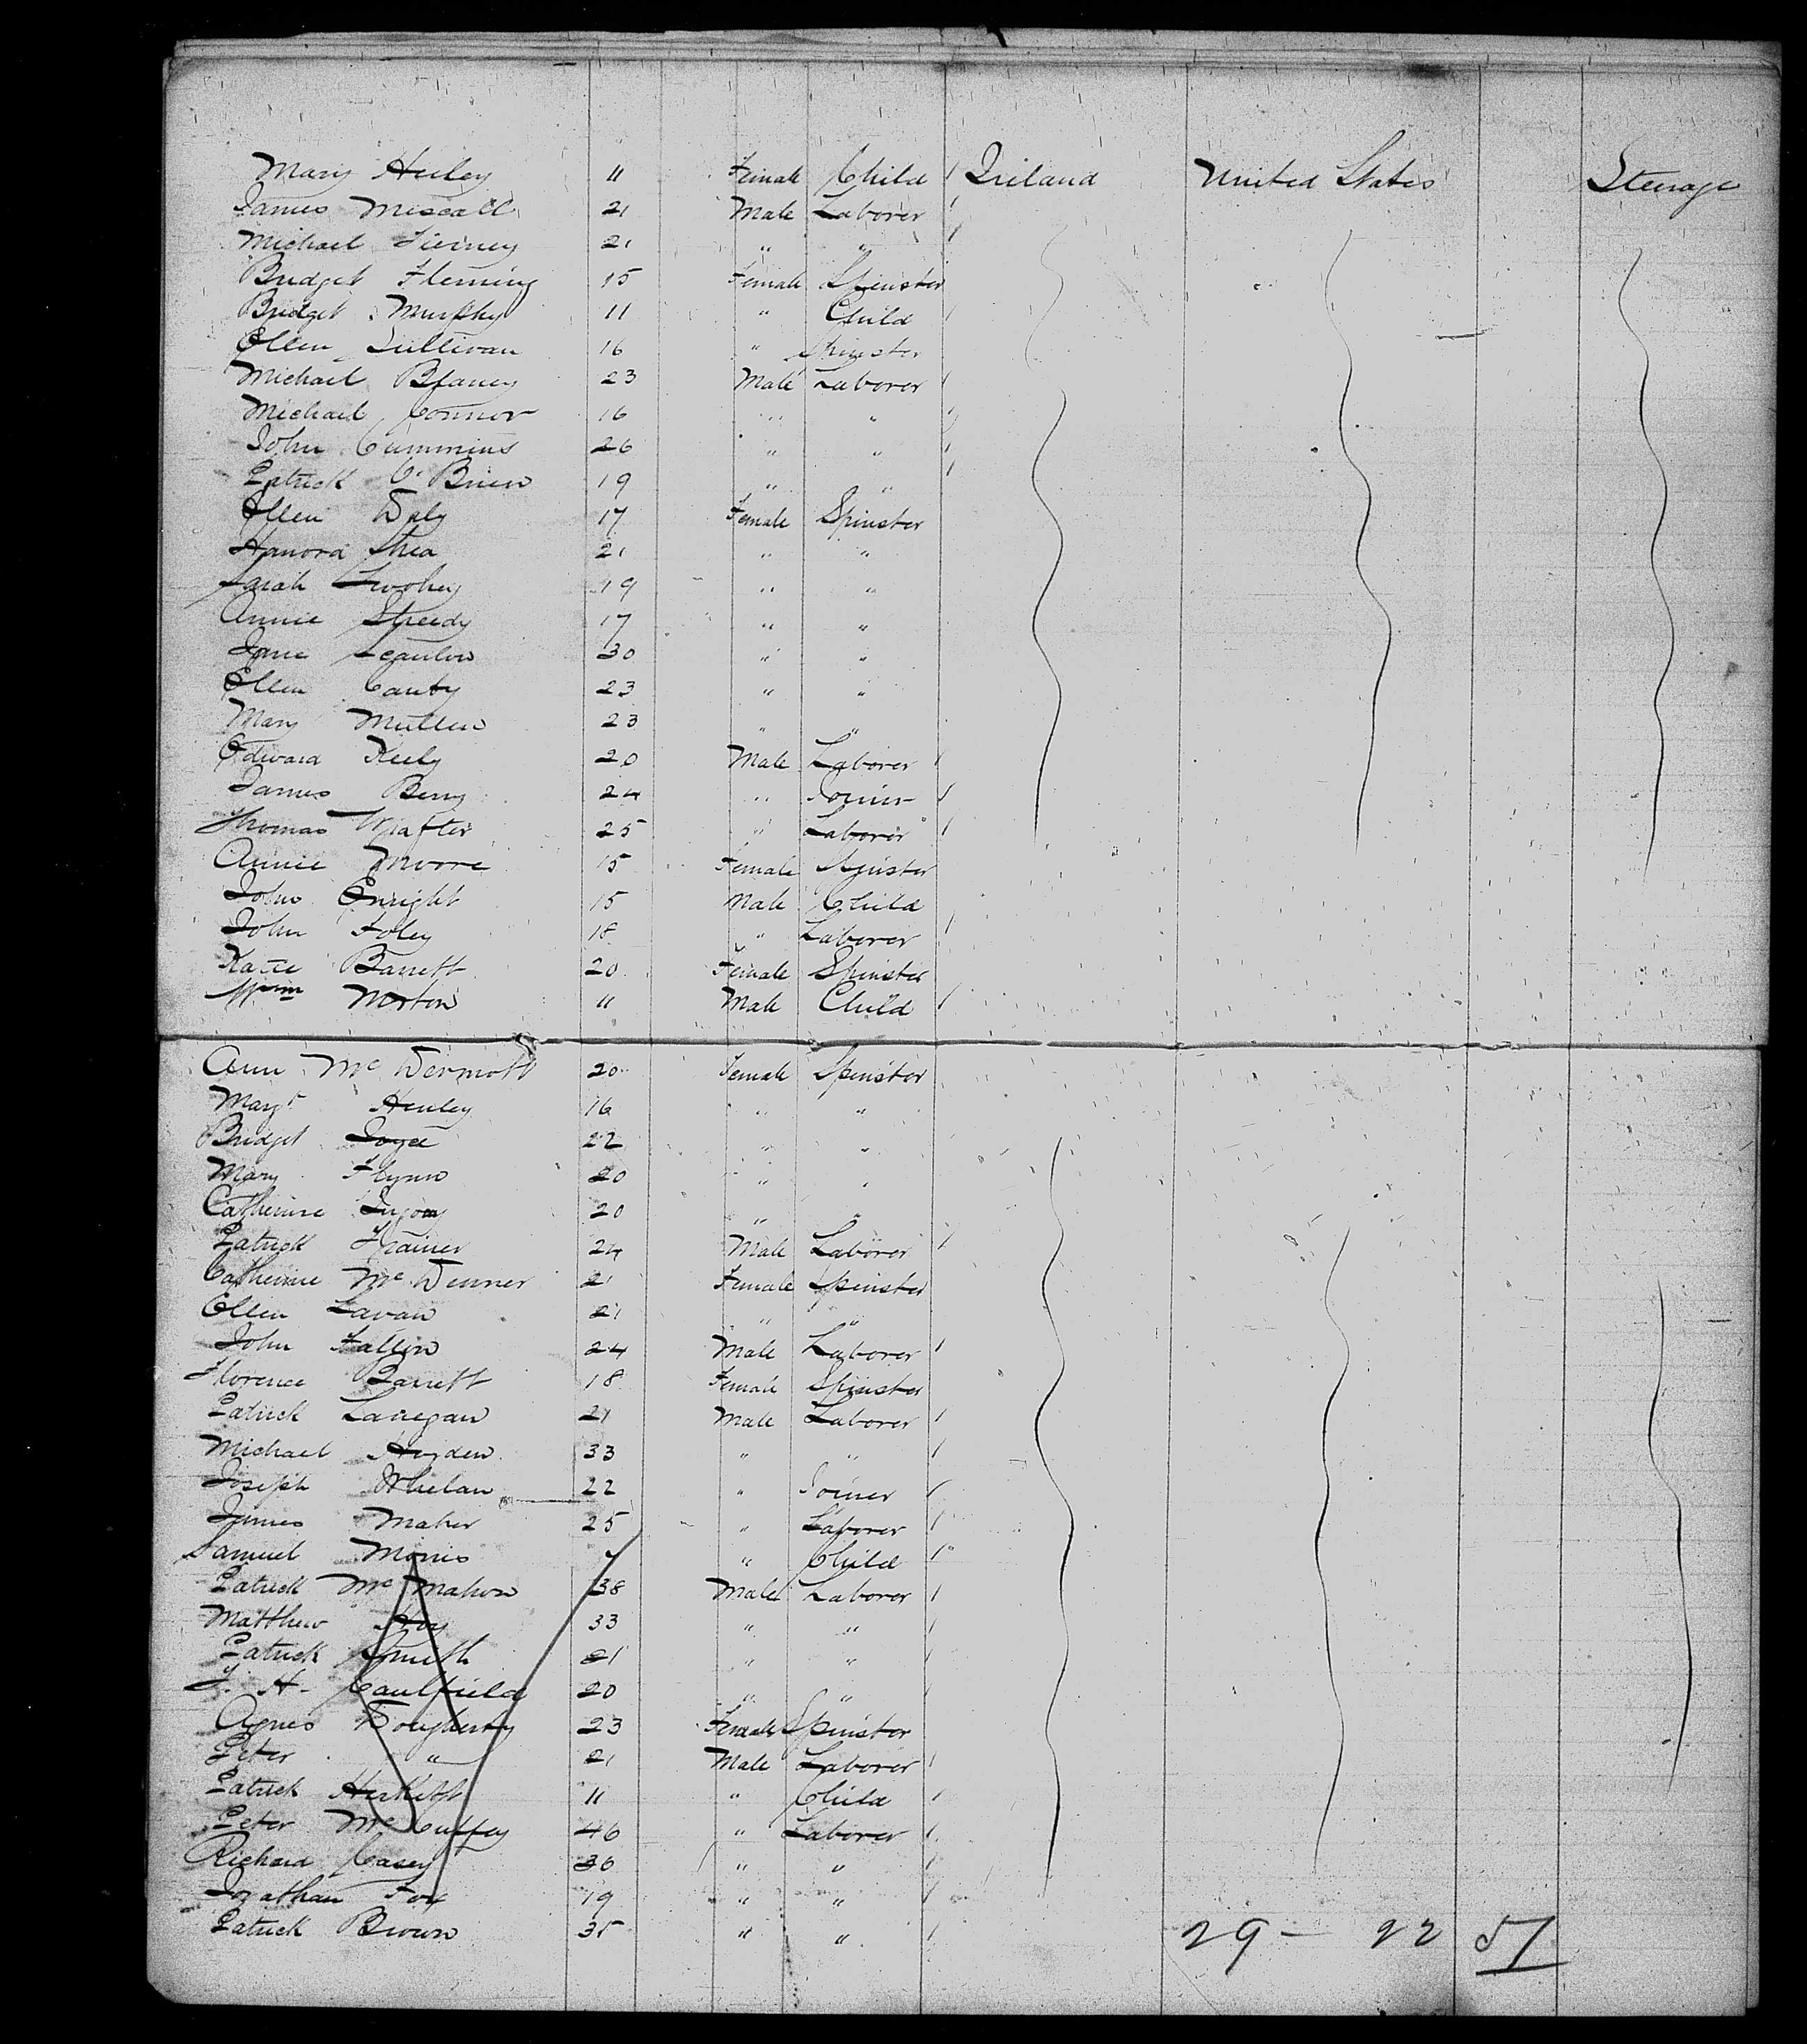 Mary Heiley 11 Female Child Ireland United States Steerage
James Miscall 21 Male Laborer
Michael Tierney 21 " "
Bridget Fleming 15 Female Spinster
Bridget Murphy 11 " Child
Ellen Sullivan 16 " Spinster
Michael Blaney 23 Male Laborer
Michael Connor 16 " "
John Cummins 26 " "
Patrick O'Brien 19 " "
Ellen Daly 17 Female Spinster
Hanora Shea 21 " "
Sarah Twohey 19 " "
Annie Speedy 17 " "
Jane Scanlon 30 " "
Ellen Canty 23 " "
Mary Mullen 23 " "
Edward Keely 20 Male Laborer
James Berry 24 " Joiner
Thomas Wrafter 25 " Laborer
Annie Moore 15 Female Spinster
John Enright 15 Male Child
John Foley 18 " Laborer
Katie Barrett 20 Female Spinster
Wm Morton 11 Male Child
Ann McDermott 20 Female Spinster
Margt Henley 16 " "
Bridget Joyce 22 " "
Mary Flynn 20 " "
Catherine 20 " "
Patrick Trainer 24 Male Laborer
Catherine McDenner 21 Female Spinster
Ellen Lavan 21 " "
John Fallon 24 Male Laborer
Florence Barrett 18 Female Spinster
Patrick Lanegan 21 Male Laborer
Michael Hayden 33 " "
Joseph Whelan 22 " Joiner
James Maher 25 " Laborer
Samuel Morris 7 " Child
Patrick McMahon 38 Male Laborer
Matthew Hoy 33 " "
Patrick Smith 21 " "
J. H. Caulfield 20 " "
Agnes Dougherty 23 Female Spinster
Peter " 21 Male Laborer
Patrick 11 " Child
Peter McGuffey 46 " Laborer
Richard Casey 36 " "
Jonathan Fox 19 " "
Patrick Brown 35 " "
29 - 22 51